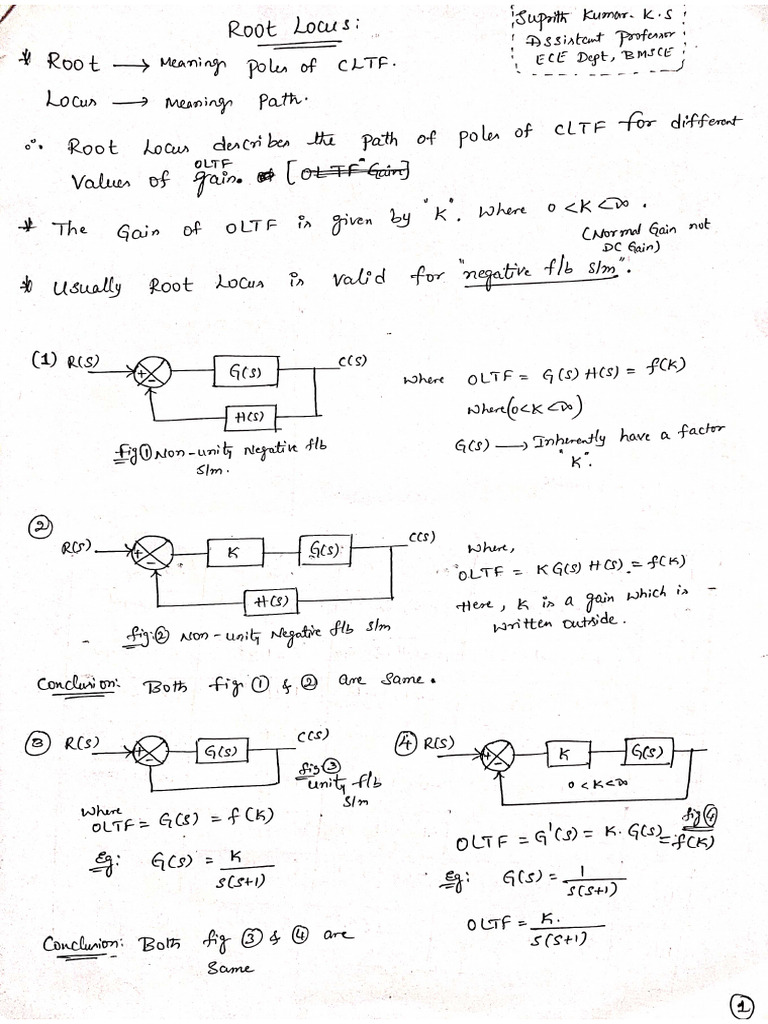 Root Locus:
Suprith Kumar. K.S
Assistant Professor
ECE Dept, BMSCE
* Root → Meanings poles of CLTF.
Locus → Meanings Path.
∴ Root Locus describes the path of poles of CLTF for different
OLTF
values of gain. [OLTF "Gain]
* The Gain of OLTF is given by "K". Where 0 < K < ∞.
(Normal Gain not
DC Gain)
* Usually Root Locus is valid for "negative f/b s/m".
(1) R(S)
+
-
G(s)
C(S)
H(s)
fig ① Non-unity Negative f/b
s/m.
where OLTF = G(s) H(s) = f(K)
where (0<K<∞)
G(s) → Inherently have a factor
"K".
②
R(S)
+
-
K
G(s)
C(S)
H(s)
fig:② Non-unity Negative f/b s/m
where,
OLTF = K G(s) H(s) = f(K)
Here, K is a gain which is -
written outside.
Conclusion: Both fig ① & ② are same.
③ R(S)
+
-
G(s)
C(S)
fig:③
unity f/b
s/m
where
OLTF = G(s) = f(K)
Eg: G(s) = K
S(S+1)
④ R(S)
+
-
K
G(s)
0 < K < ∞
fig ④
OLTF = G'(s) = K. G(s) = f(K)
Eg: G(s) = 1
S(S+1)
OLTF = K.
S(S+1)
Conclusion: Both fig ③ & ④ are
Same
①